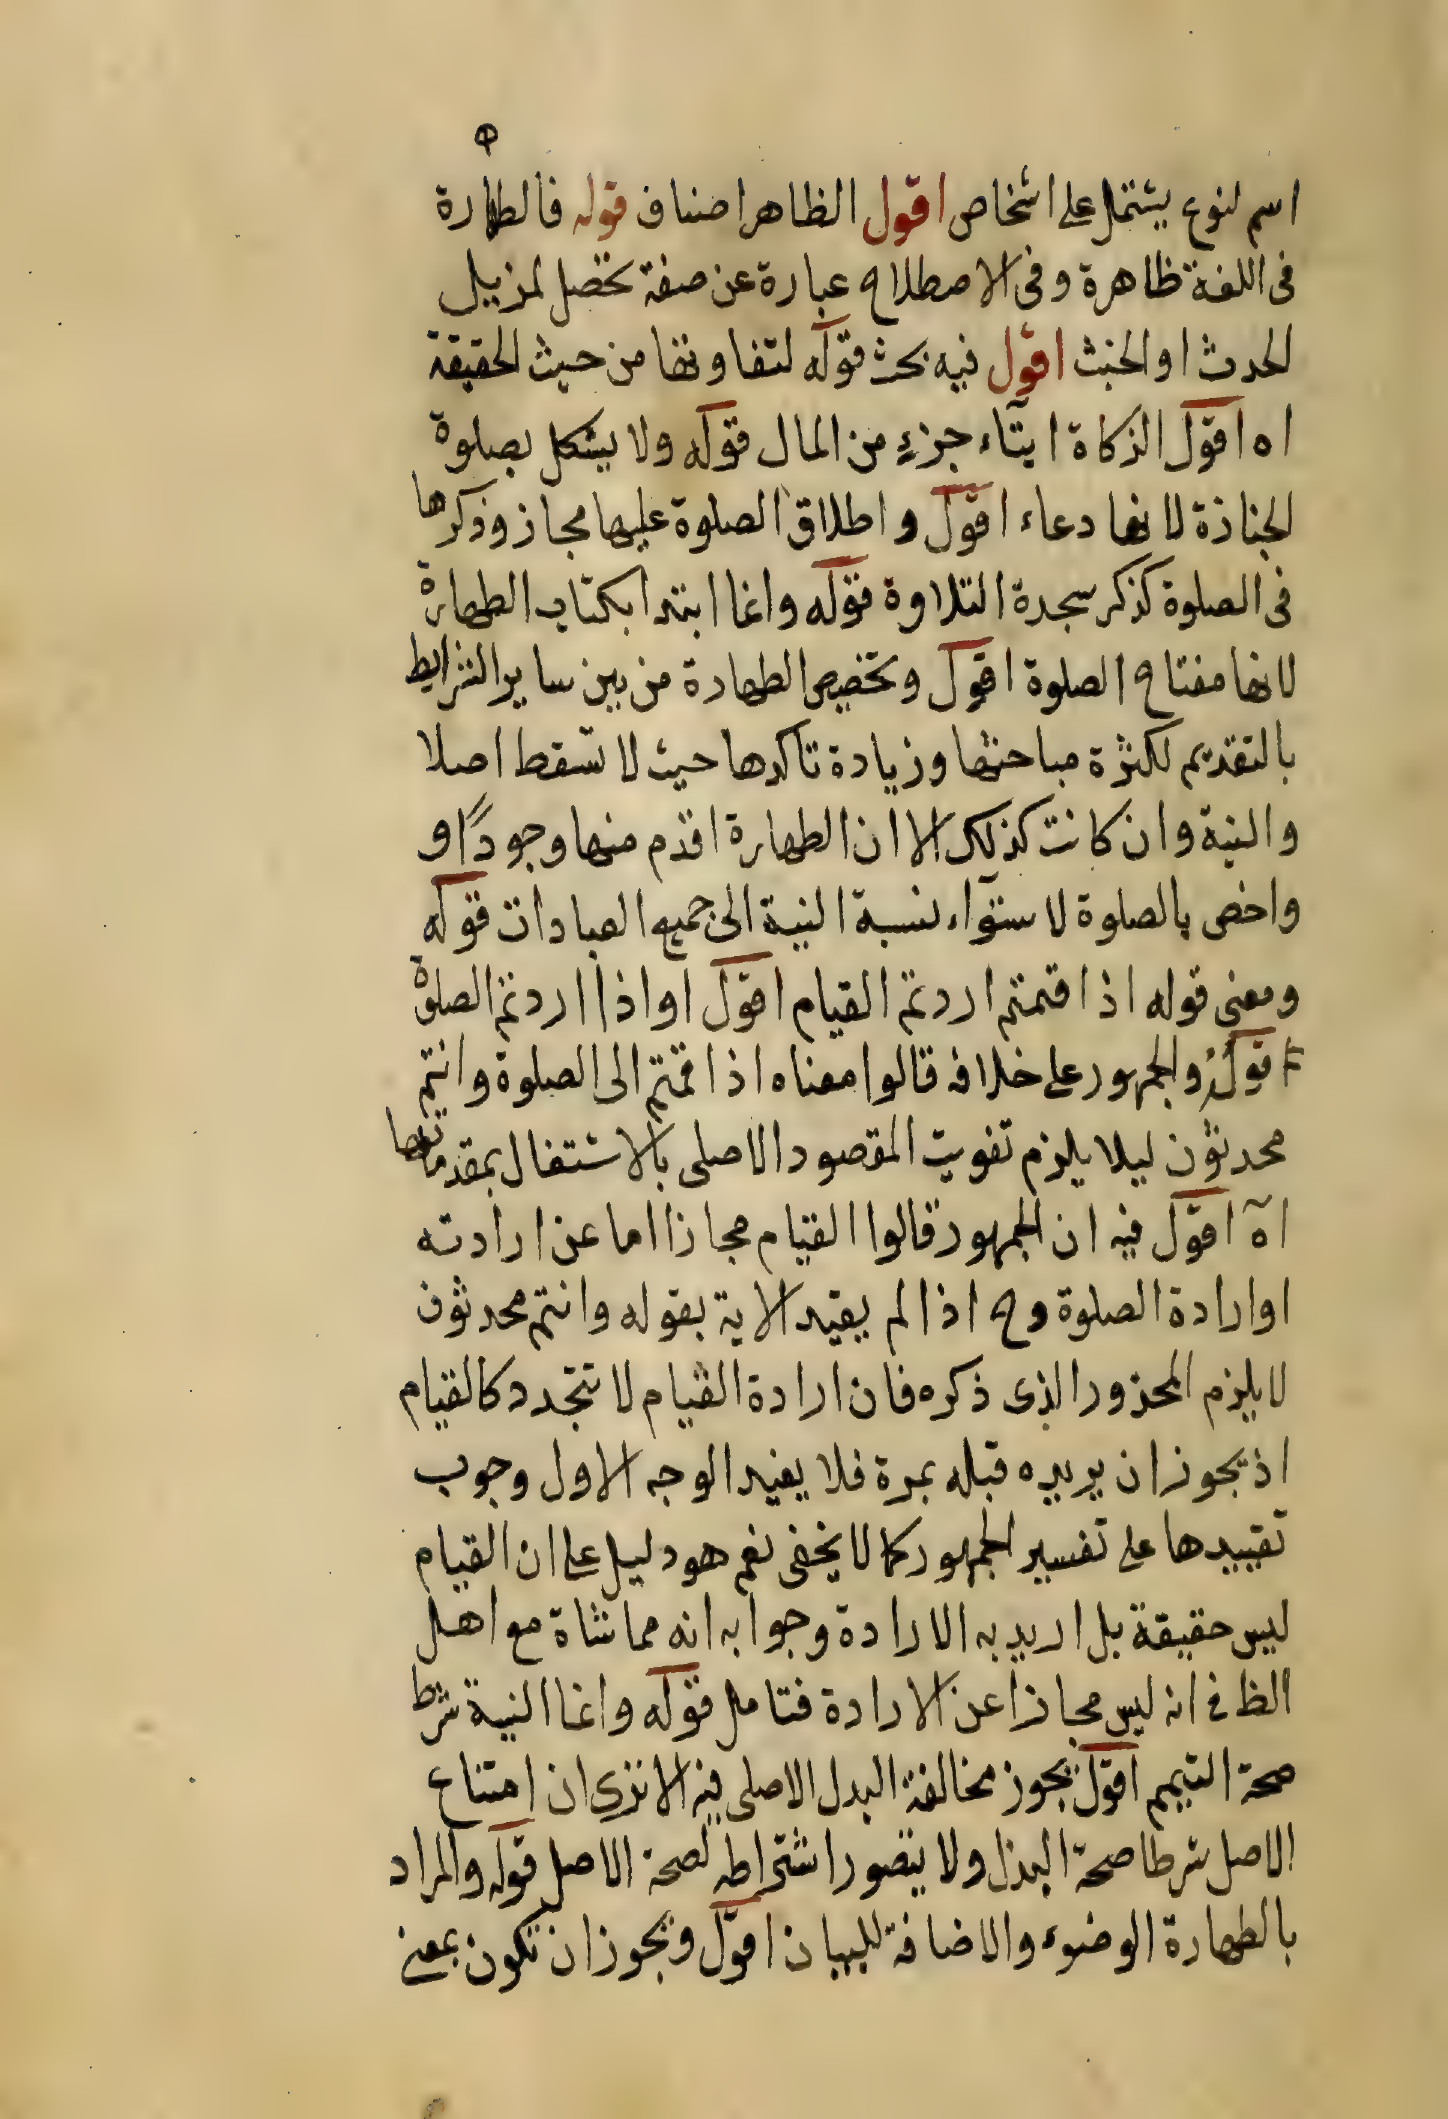 اسم لنوع يشتمل على اشخاص اقول الظاهر اصناف قوله فالطهارة
فى اللغة ظاهرة وفى الاصطلاح عبارة عن صفة تحصل لمزيل
الحدث او الخبث اقول فيه بحث قوله لتفاوتها من حيث الحقيقة
اه اقول الزكاة ايتاء جزء من المال قوله ولا يشكل بصلوة
الجنازة لانها دعاء اقول واطلاق الصلوة عليها مجاز وذكرها
فى الصلوة كذكر سجدة التلاوة قوله وانما ابتدا بكتاب الطهارة
لانها مفتاح الصلوة اقول وتخصيص الطهارة من بين ساير الشرايط
بالتقديم لكثرة مباحثها وزيادة تاكدها حيث لا تسقط اصلا
والنية وان كانت كذلك الا ان الطهارة اقدم منها وجودًا و
واخص بالصلوة لاستواء نسبة النية الى جميع العبادات قوله
ومعنى قوله اذا قمتم اردتم القيام اقول او اذا اردتم الصلوة
اقول والجمهور على خلافه قالوا معناه اذا قمتم الى الصلوة وانتم
محدثون ليلا يلزم تفويت المقصود الاصلى بالاشتغال بمقدماتها
اه اقول فيه ان الجمهور قالوا القيام مجازا اما عن ارادته
او ارادة الصلوة وح اذا لم يقيد الاية بقوله وانتم محدثون
لا يلزم المحذور الذى ذكره فان ارادة القيام لا تتجدد كالقيام
اذ يجوز ان يريده قبله بمرة فلا يفيد الوجه الاول وجوب
تقييدها على تفسير الجمهور كما لا يخفى نعم هو دليل على ان القيام
ليس حقيقة بل اريد به الارادة وجوابه انه مماشاة مع اهل
الظ فى انه ليس مجازا عن الارادة فتامل قوله وانما النية شرط
صحة التيمم اقول يجوز مخالفة البدل الاصلى فيه الا ترى ان امتناع
الاصل شرط صحة البدل ولا يتصور اشتراطه لصحة الاصل قوله والمراد
بالطهارة الوضوء والاضافة للبيان اقول ويجوز ان تكون بمعنى